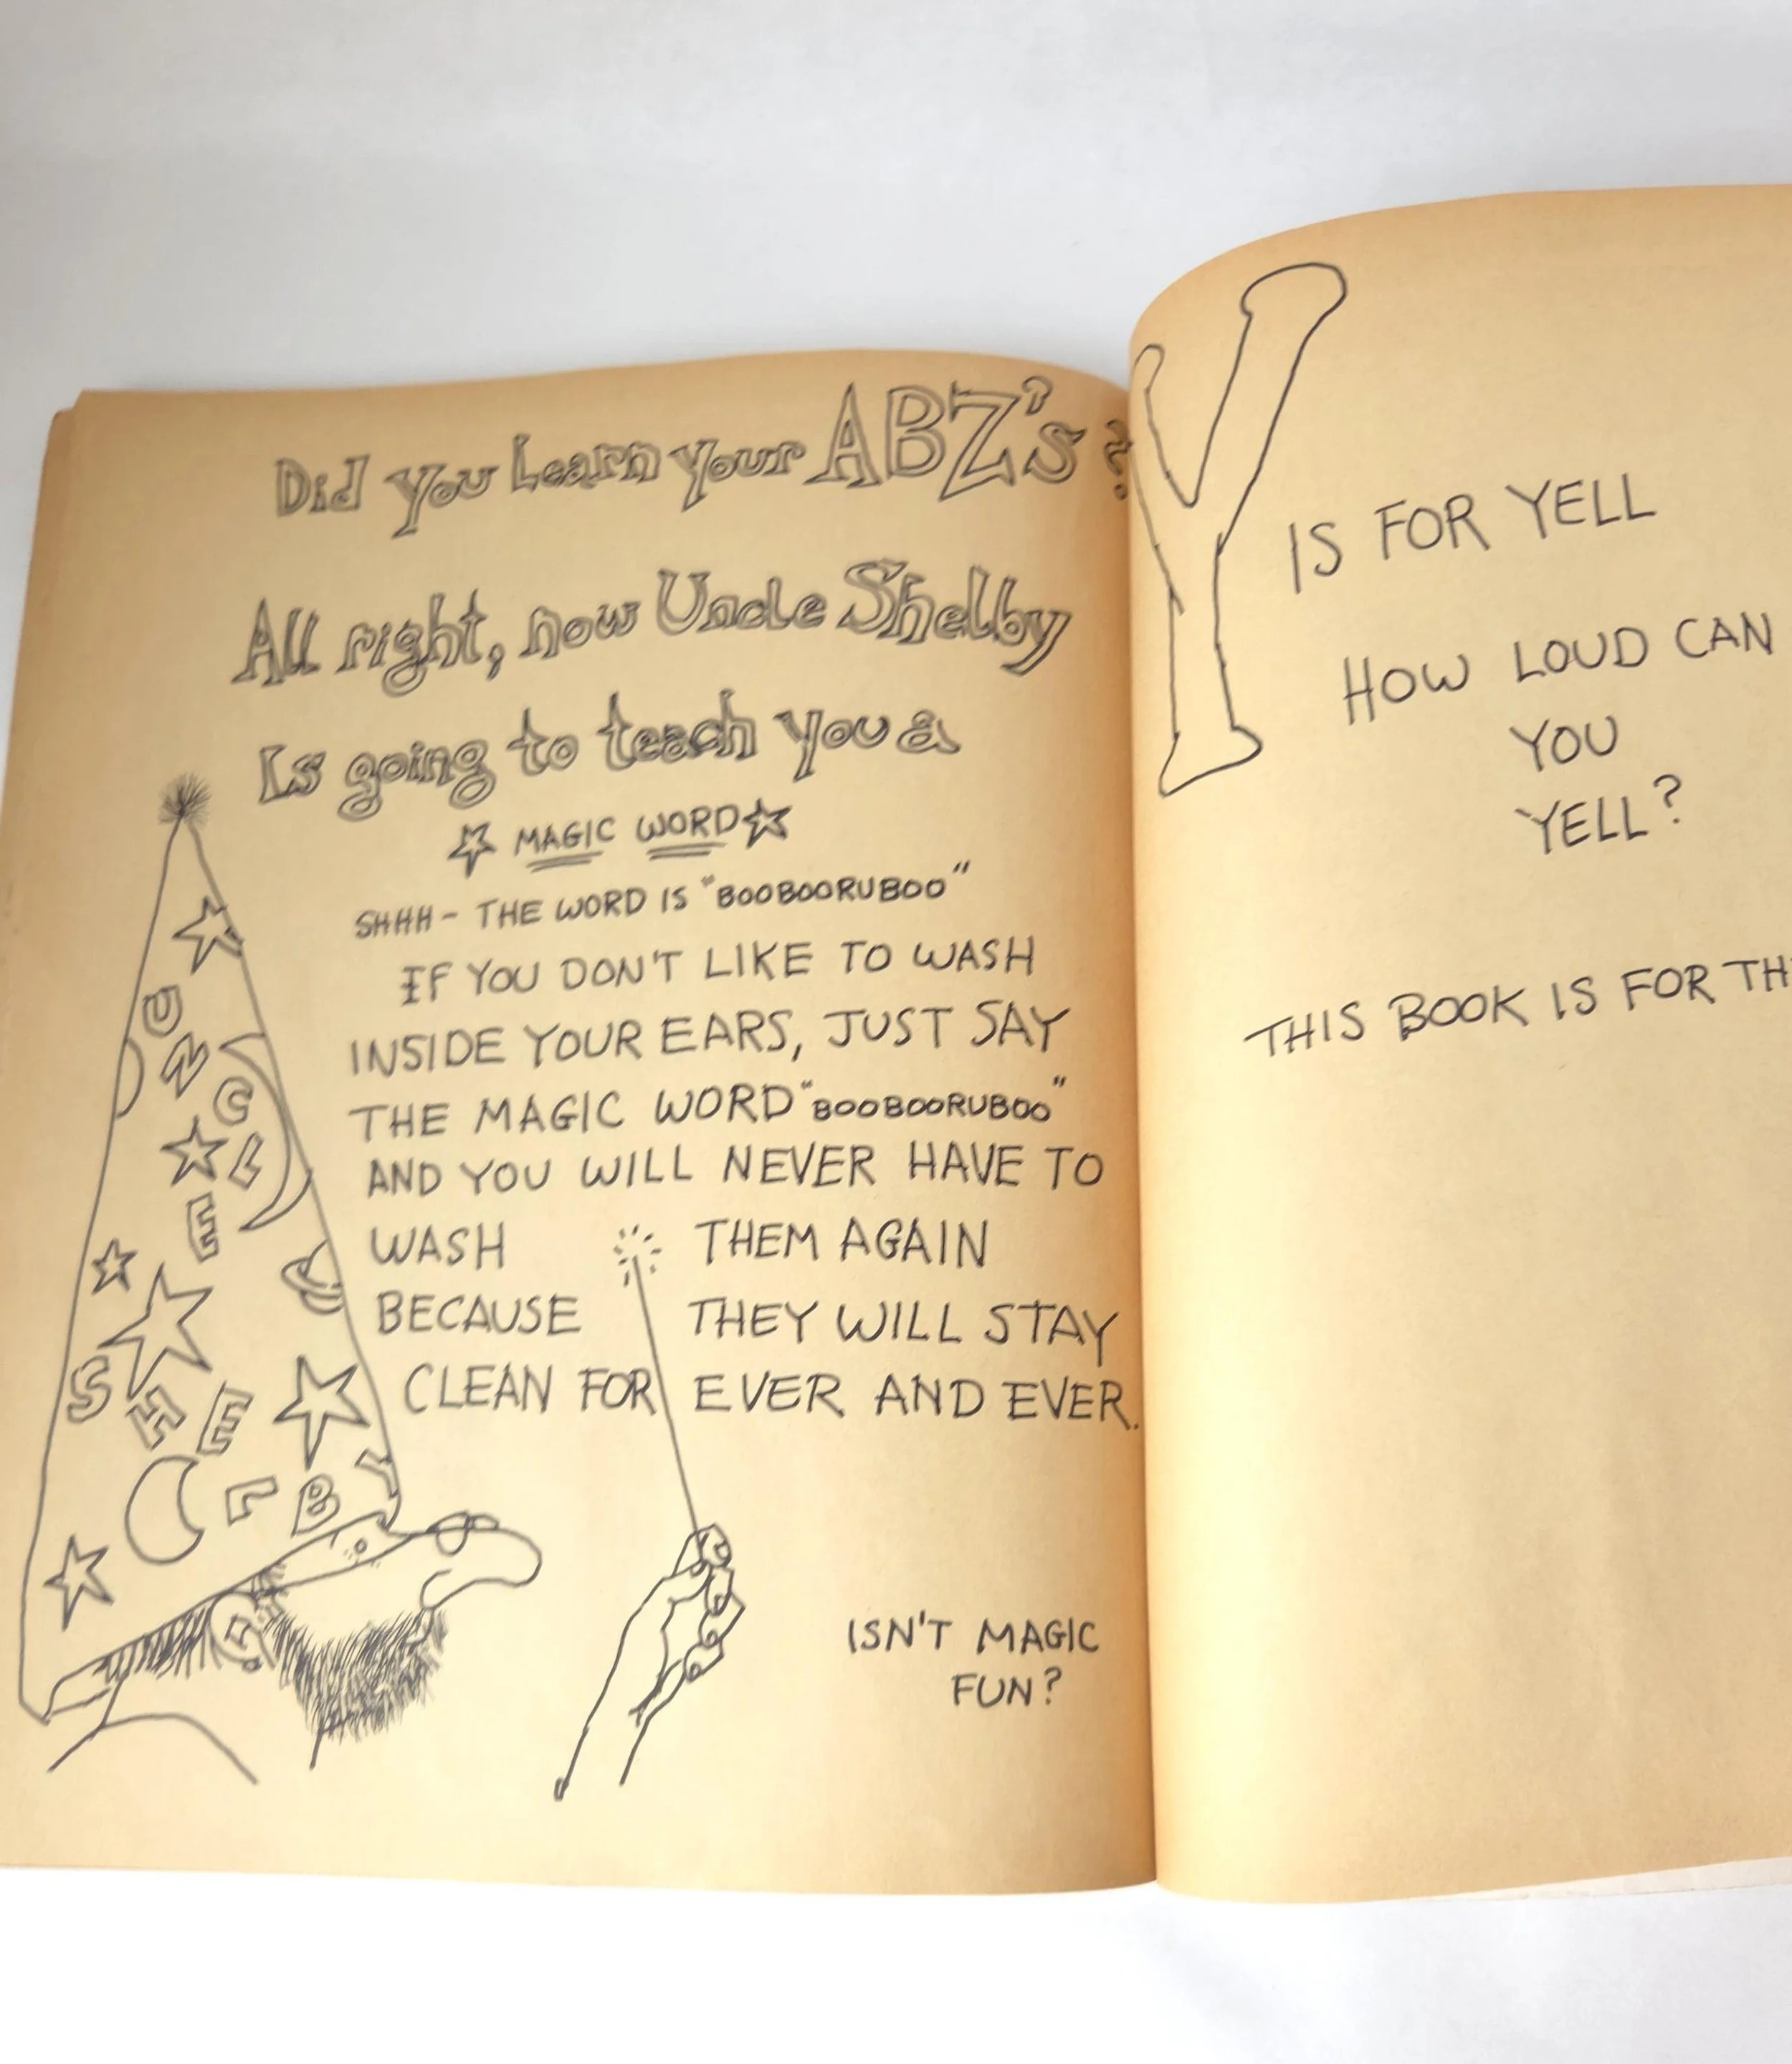 Did you Learn your ABZ's?
All right, now Uncle Shelby
Is going to teach you a
MAGIC WORD
SHHH - THE WORD IS "BOOBOORUBOO"
IF YOU DON'T LIKE TO WASH
INSIDE YOUR EARS, JUST SAY
THE MAGIC WORD "BOOBOORUBOO"
AND YOU WILL NEVER HAVE TO
WASH THEM AGAIN
BECAUSE THEY WILL STAY
CLEAN FOR EVER AND EVER.
UNCLE
SHELBY
ISN'T MAGIC
FUN?
Y IS FOR YELL
HOW LOUD CAN
YOU
YELL?
THIS BOOK IS FOR